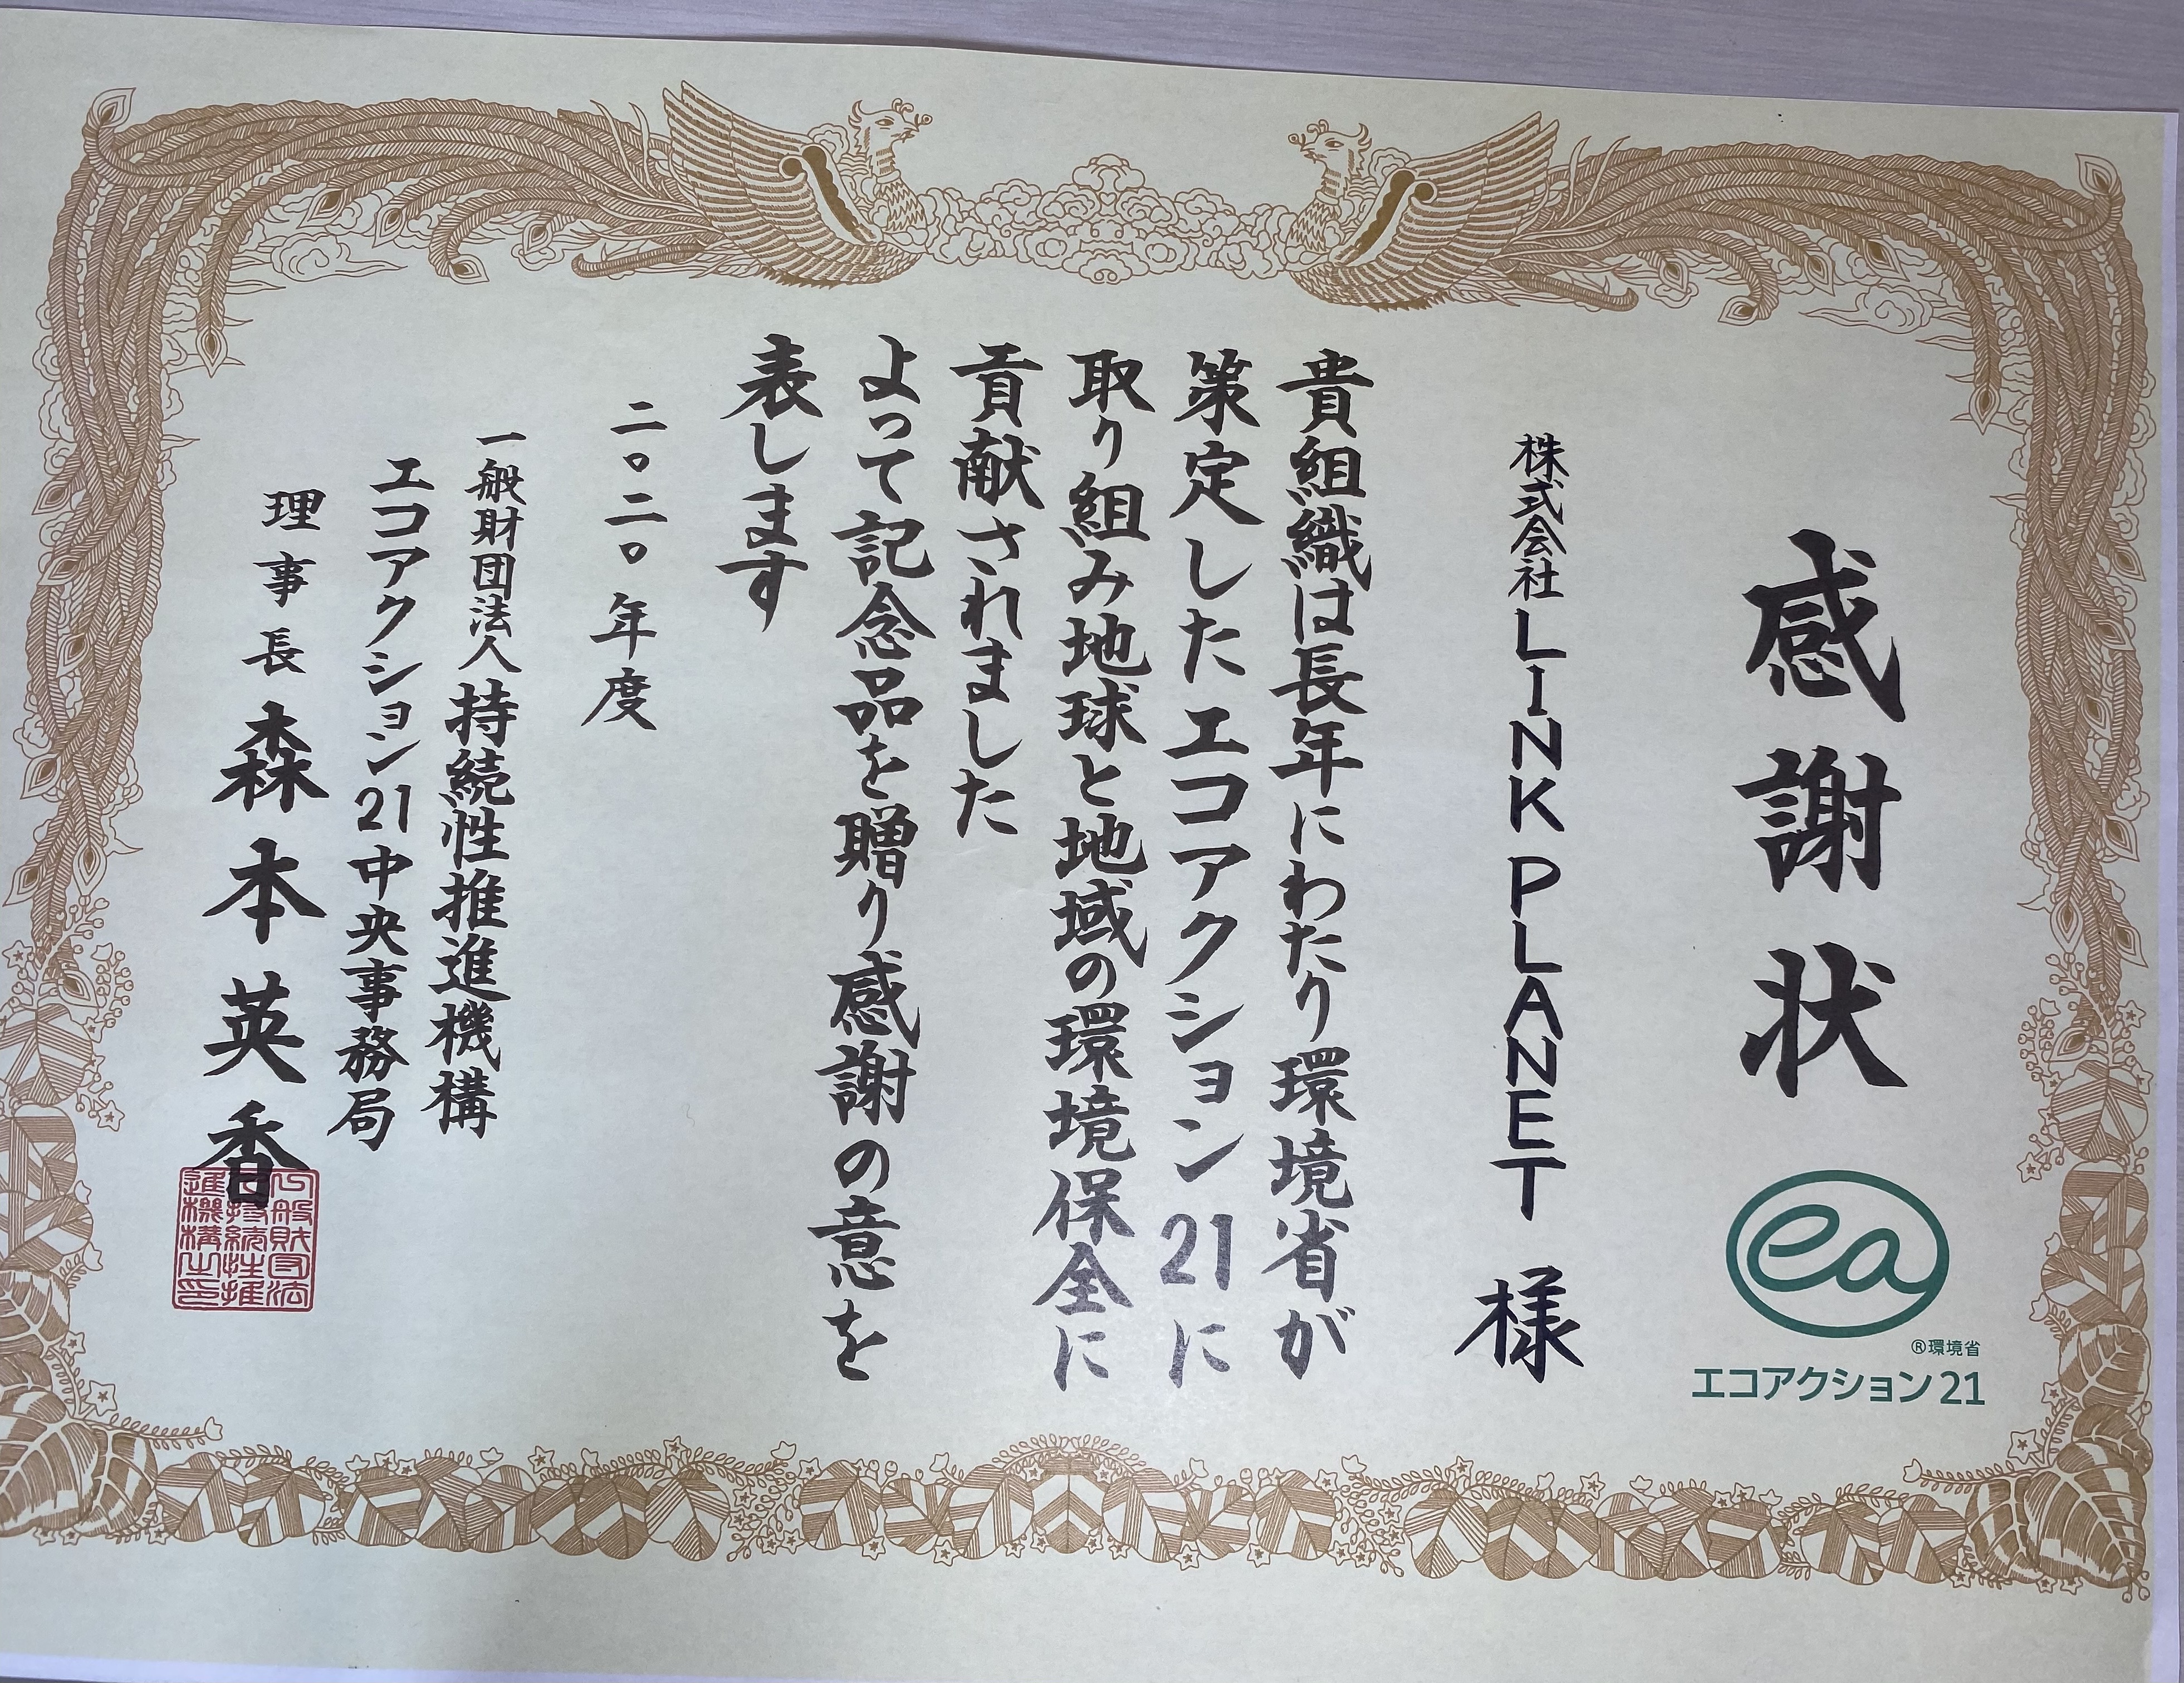 感謝状
ea
®環境省
エコアクション21
株式会社LINK PLANET 様
貴組織は長年にわたり環境省が
策定したエコアクション21に
取り組み地球と地域の環境保全に
貢献されました
よって記念品を贈り感謝の意を
表します
二〇二〇年度
一般財団法人持続性推進機構
エコアクション21中央事務局
理事長 森本英香
一般財団法
人持続性推
進機構之印